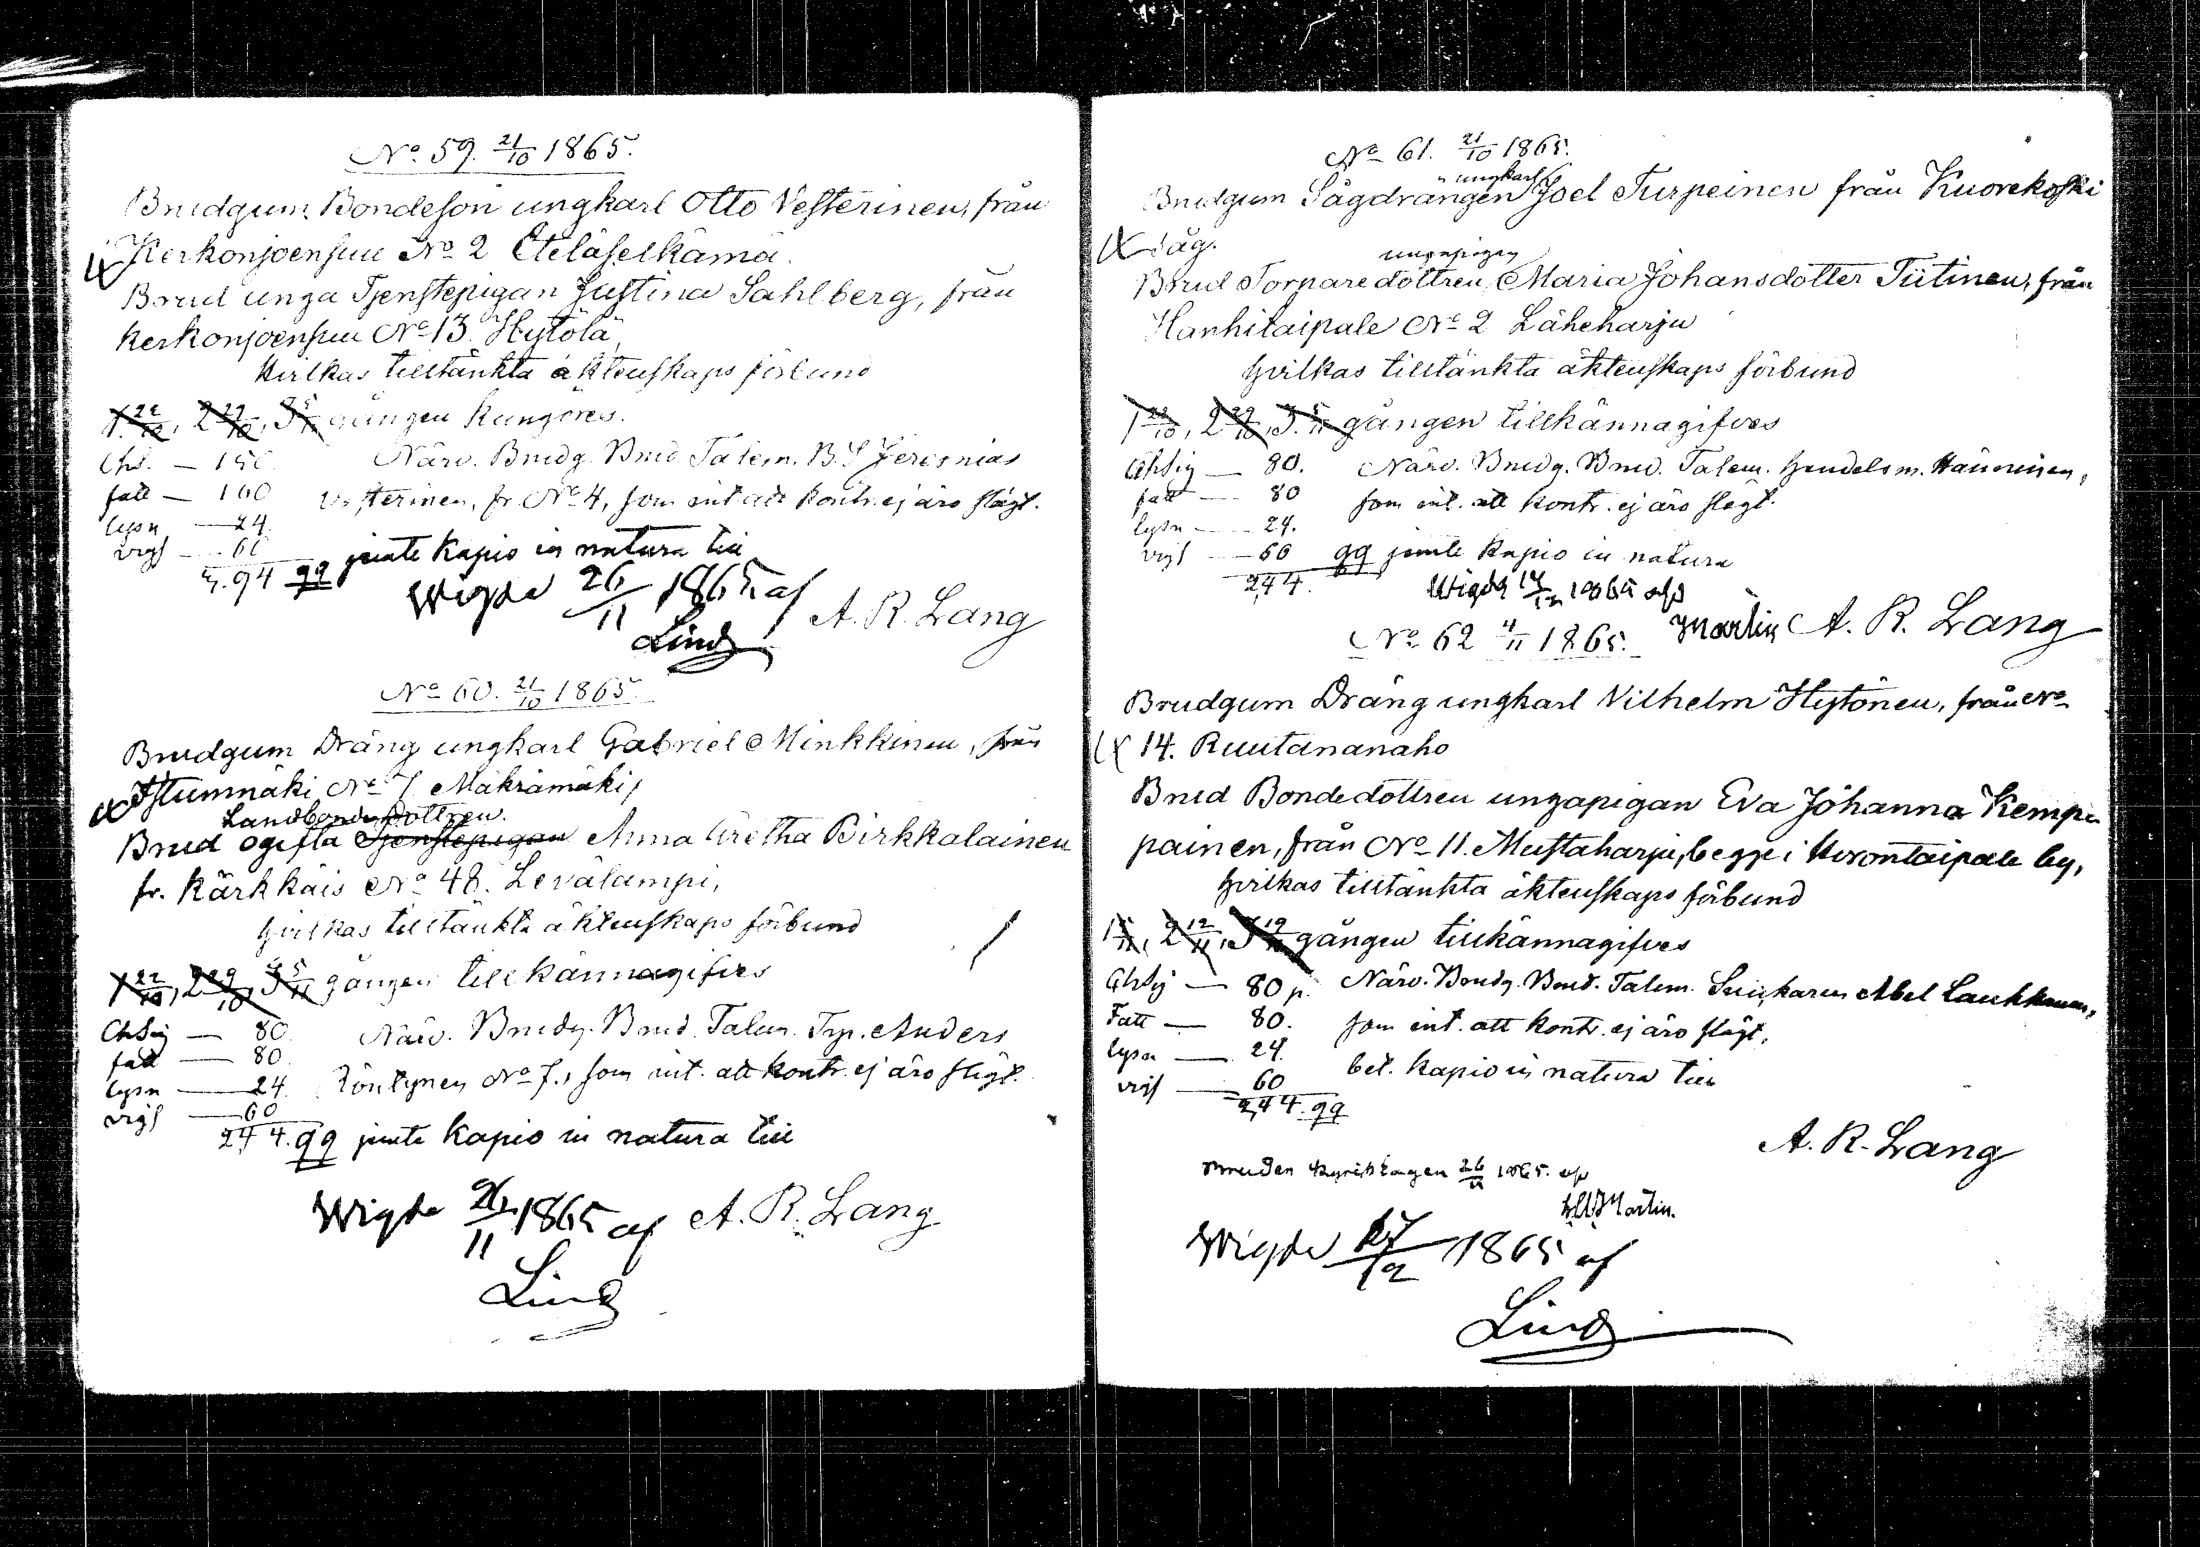 No 59. 21/10 1865.
Brudgum Bondeson ungkarl Otto Vesterinen, från
Kerkonjoensuu No 2 Eteläselkämä.
Brud unga Tjenstepigan Justina Sahlberg, från
Kerkonjoensuu No 13. Hytölä,
Hvilkas tilltänkta äktenskaps förbund
1 22/10, 2 29/10, 3 5/11 gången kungöres.
Närv. Brudg. Brud. Talem. B.S. Jeremias
Vesterinen, fr. No 4, som int. att kontr. ej äro slägt.
Chs. — 150
fatt — 160
lysn — 24
vigs — 60
94 qq jemte Kapio in natura till
A. R. Lang
Wigde 26/11 1865 af
Lind
No 60. 21/10 1865.
Brudgum Dräng ungkarl Gabriel Minkkinen, från
Istunmäki No 7 Mäkrämäki,
Landbondedottren.
Brud ogifta Tjenstepigan Anna Gretha Birkkalainen
fr. Kärkkäis No 48. Levälampi,
hvilkas tilltänkta äktenskaps förbund
1 22/10, 2 29/10, 3 5/11 gången tillkännagifves
Närv. Brudg. Brud. Talem. Trp. Anders
Pöntynen No 7., som int. att kontr. ej äro slägt.
ChSig — 80
fatt — 80
lysn — 24
vigs — 60
2,44. qq jemte Kapio in natura till
A. R. Lang
Wigde 26/11 1865 af
Lind
No 61. 21/10 1865.
ungkarl
Brudgum Sågdrängen Joel Turpeinen från Kuorekoski
såg.
ungapigan
Brud Torparedottren, Maria Johansdotter Tiitinen, från
Hanhitaipale No 2 Läheharju
hvilkas tilltänkta äktenskaps förbund
1 22/10, 2 29/10, 3. 5/11 gången tillkännagifves
Närv. Brudg. Brud. Talem. Handelsm. Hänninen,
som int. att kontr. ej äro slägt.
ChSig — 80.
fatt — 80
lysn — 24.
vigs — 60 qq jemte Kapio in natura
2,44.
Wigde 1865 af
Martin A. R. Lang
No 62 4/11 1865.
Brudgum Dräng ungkarl Vilhelm Hytönen, från No
14. Ruutananaho
Brud Bondedottren ungapigan Eva Johanna Kemp-
painen, från No 11. Mustaharju, begge i Kerontaipale by,
hvilkas tilltänkta äktenskaps förbund
1 5/11, 2 12/11, 3 19/11 gången tillkännagifves
Närv. Brudg. Brud. Talem. Abel Laukkanen,
som int. att kontr. ej äro slägt.
bet. Kapio in natura till
ChSig — 80 p.
Fatt — 80.
lysn — 24.
vigs — 60
2,44. qq
A. R. Lang
Bruden kyrktagen 26/11 1865. af
Martin.
Wigde 27/12 1865 af
Lind